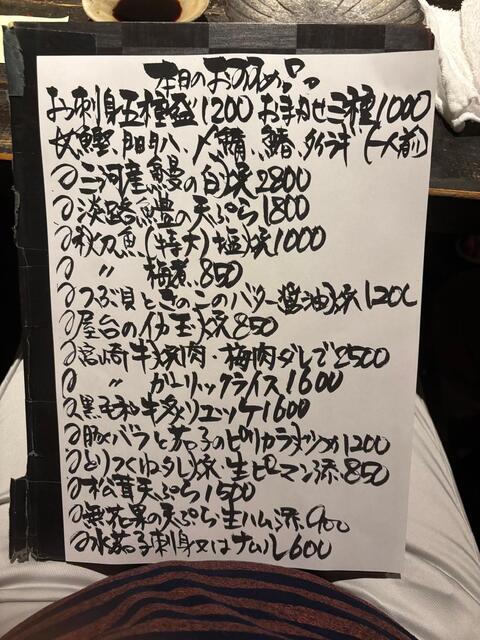 本日のおすすめ
お刺身五種盛1200 お任せ三種1000
鰹、〆鯖、鰆、タイラギ(一人前)
三河産鰻の白焼2800
淡路鱧の天ぷら1800
秋刀魚(特大)塩焼1000
〃 梅煮.850
つぶ貝ときのこのバター醤油焼120
屋台のイカ玉焼850
宮崎牛焼肉・梅肉ダレで2500
〃 ガーリックライス1600
黒毛和牛炙りユッケ1600
豚バラと茄子のピリカラ1200
とりつくねタレ焼・生ピーマン添.850
松茸天ぷら1500
無花果の天ぷら生ハム添.900
水茄子刺身又はナムル600